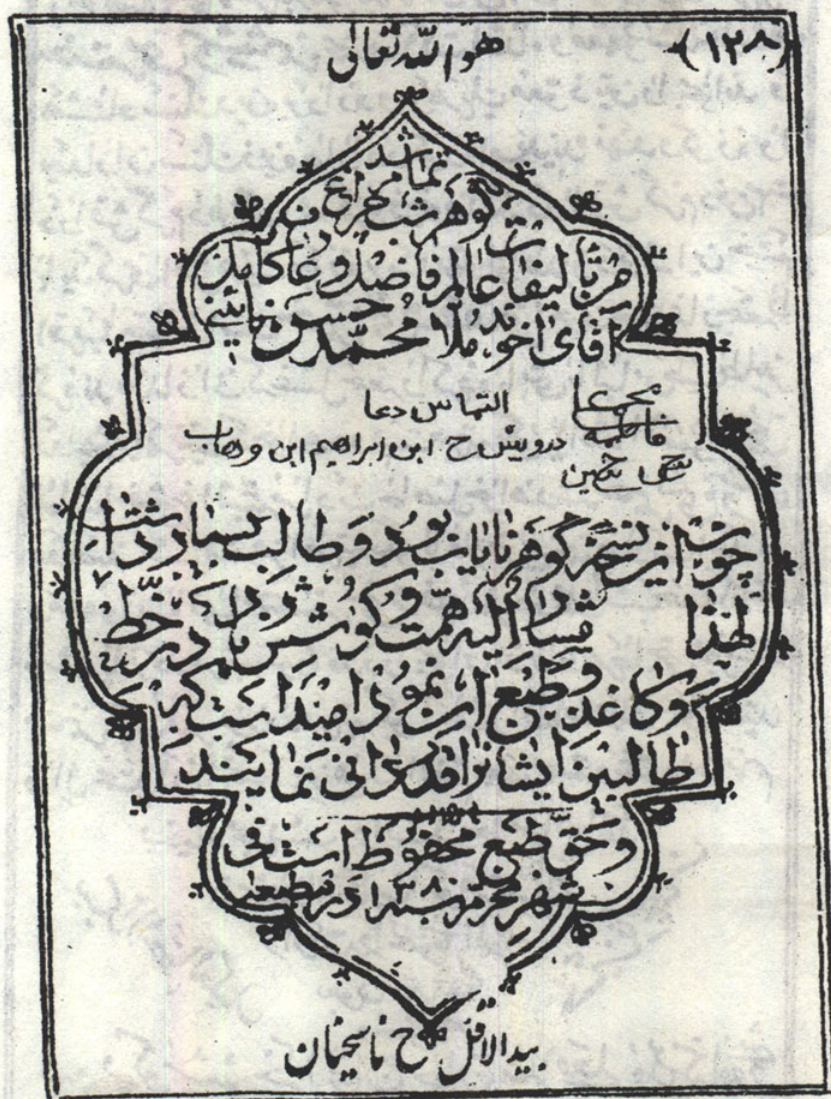 (۱۲۸)
هو الله تعالی
نماشد
گوهر شب چراغ
من تالیفات عالم فاضل و عامل کامل
آقای آخوند ملا محمد حسن نائینی
التماس دعا
فاطمه
درویش ح ابن ابراهیم ابن وهاب
چون این نسخه گوهر نایاب بود و طالب بسیار داشت
لهذا همت و کوشش در خط
و کاغذ و طبع ان نموده امید است که
طالبین ایشان را قدردانی نمایند
و حق طبع محفوظ است فی
شهر محرم سنه ۱۳۸۰ در مطبعه
بید الاقل ح